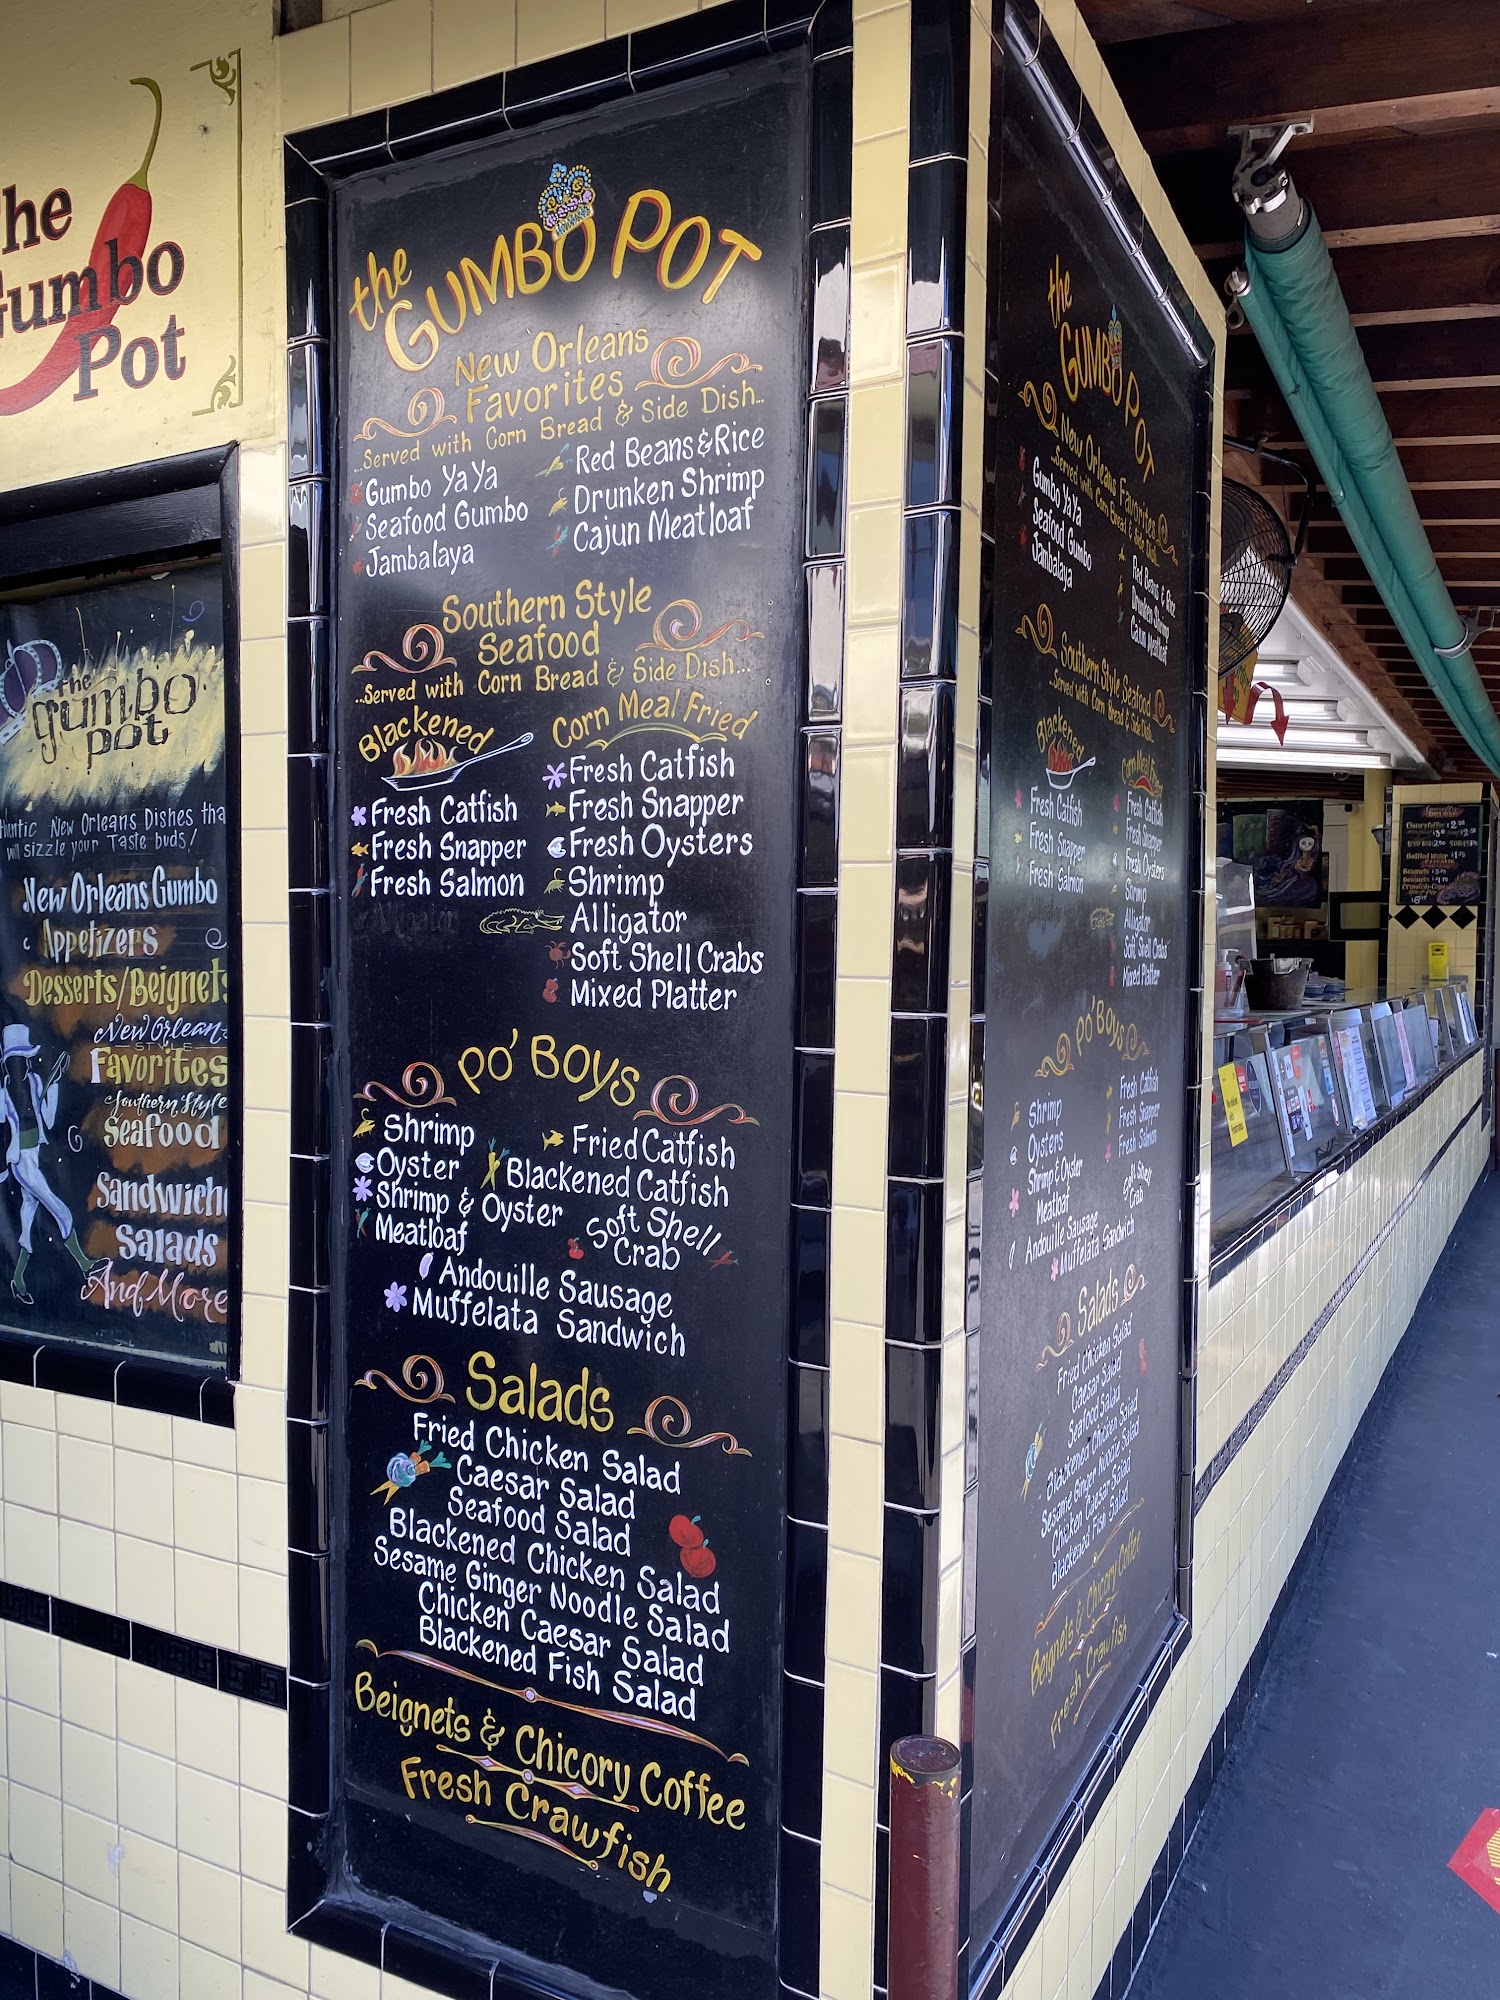 The
Gumbo
Pot
the
gumbo
pot
New Orleans Dishes
will sizzle your Taste buds!
New Orleans Gumbo
Appetizers
Desserts/Beignets
New Orleans
STYLE
Favorites
Southern Style
Seafood
Sandwich
Salads
And More
the GUMBO POT
New Orleans
Favorites
...Served with Corn Bread & Side Dish...
Gumbo YaYa
Seafood Gumbo
Jambalaya
Red Beans & Rice
Drunken Shrimp
Cajun Meatloaf
Southern Style
Seafood
...Served with Corn Bread & Side Dish...
Blackened
Fresh Catfish
Fresh Snapper
Fresh Salmon
Alligator
Corn Meal Fried
Fresh Catfish
Fresh Snapper
Fresh Oysters
Shrimp
Alligator
Soft Shell Crabs
Mixed Platter
PO' BOYS
Shrimp
Oyster
Shrimp & Oyster
Meatloaf
Fried Catfish
Blackened Catfish
Soft Shell
Crab
Andouille Sausage
Muffelata Sandwich
Salads
Fried Chicken Salad
Caesar Salad
Seafood Salad
Blackened Chicken Salad
Sesame Ginger Noodle Salad
Chicken Caesar Salad
Blackened Fish Salad
Beignets & Chicory Coffee
Fresh Crawfish
the
GUMBO POT
New Orleans Favorites
...Served with Corn Bread & Side Dish...
Gumbo YaYa
Seafood Gumbo
Jambalaya
Red Beans & Rice
Drunken Shrimp
Cajun Meatloaf
Southern Style Seafood
...Served with Corn Bread & Side Dish...
Blackened
Fresh Catfish
Fresh Snapper
Fresh Salmon
Corn Meal Fried
Fresh Catfish
Fresh Snapper
Fresh Oysters
Shrimp
Alligator
Soft Shell Crabs
Mixed Platter
PO' BOYS
Shrimp
Oysters
Shrimp & Oyster
Meatloaf
Fresh Catfish
Fresh Snapper
Fresh Salmon
Soft Shell
Crab
Andouille Sausage
Muffelata Sandwich
Salads
Fried Chicken Salad
Caesar Salad
Seafood Salad
Blackened Chicken Salad
Sesame Ginger Noodle Salad
Chicken Caesar Salad
Blackened Fish Salad
Beignets & Chicory Coffee
Fresh Crawfish
Chicory Coffee
Bottled Water
Beignets